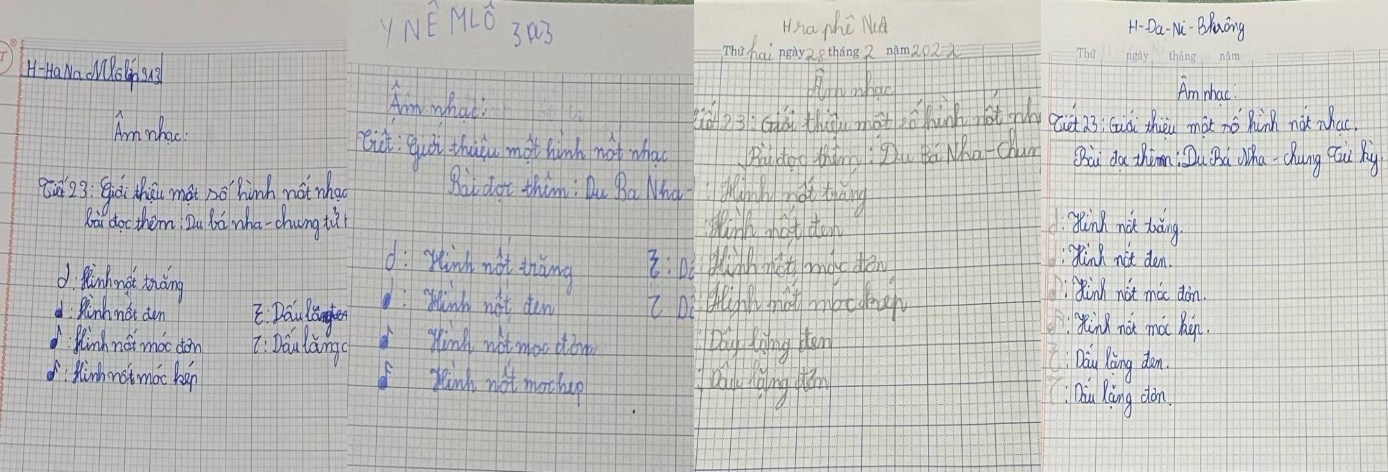 H-HaNa Mlô lớp 3A3
Âm nhạc:
Tiết 23: Giới thiệu một số hình nốt nhạc
bài đọc thêm: Du bá nha-chung tử
d: Hình nốt trắng
Hình nốt đen
Hình nốt móc đơn
Hình nốt móc kép
Dấu lặng đen
Dấu lặng
Y NÊ MLÔ 3A3
Âm nhạc:
Tiết: Giới thiệu một hình nốt nhạc
Bài đọc thêm: Du Ba Nha-
Hình nốt trắng
Hình nốt đen
Hình nốt moc đơn
Hình nốt moc hep
Hra phê Niê
Thứ hai ngày 28 tháng 2 năm 2022
Âm nhạc
Tiết 23: Giới thiệu một số hình nốt nhạ
Bài đọc thêm: Du Bá Nha-Chun
Hình nốt trắng
Hình nốt đen
Hình nốt móc đơn
Hình nốt móc kép
Dấu lặng đen
Dấu lặng đơn
H-Da-Ni-Bkrông
Thứ ngày tháng năm
Âm nhạc:
Tiết 23: Giới thiệu một số hình nốt nhạc.
Bài đọc thêm: Du Bá Nha-chung Tử kỳ
Hình nốt trắng.
Hình nốt đen.
Hình nốt móc đơn.
Hình nốt móc kép.
Dấu lặng đen.
Dấu lặng đơn.